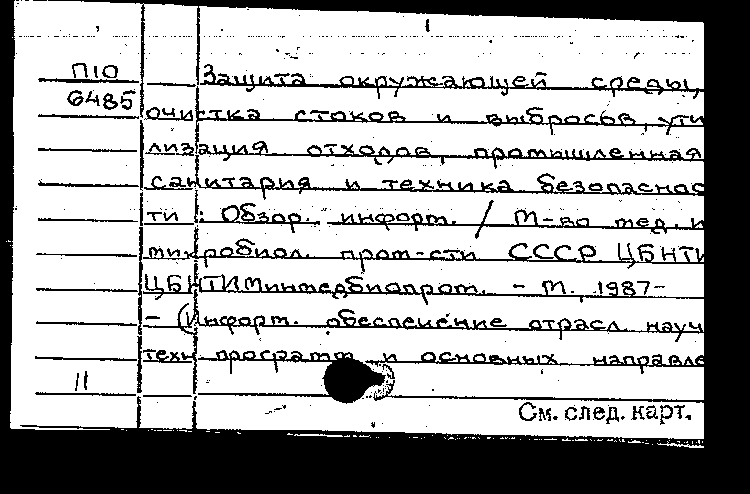 П10 Защита окружающей среды,
6485 очистка стоков и выбросов, ути
лизация отходов, промышленная
санитария и техника безопаснос
ти : Обзор. информ. / М-во мед. и
микробиол. пром-сти СССР ЦБНТИ
ЦБНТИМинмедбиопром. - М., 1987-
- (Информ. обеспечение отрасл. науч
техн. программ и основных направле
11
См. след. карт.